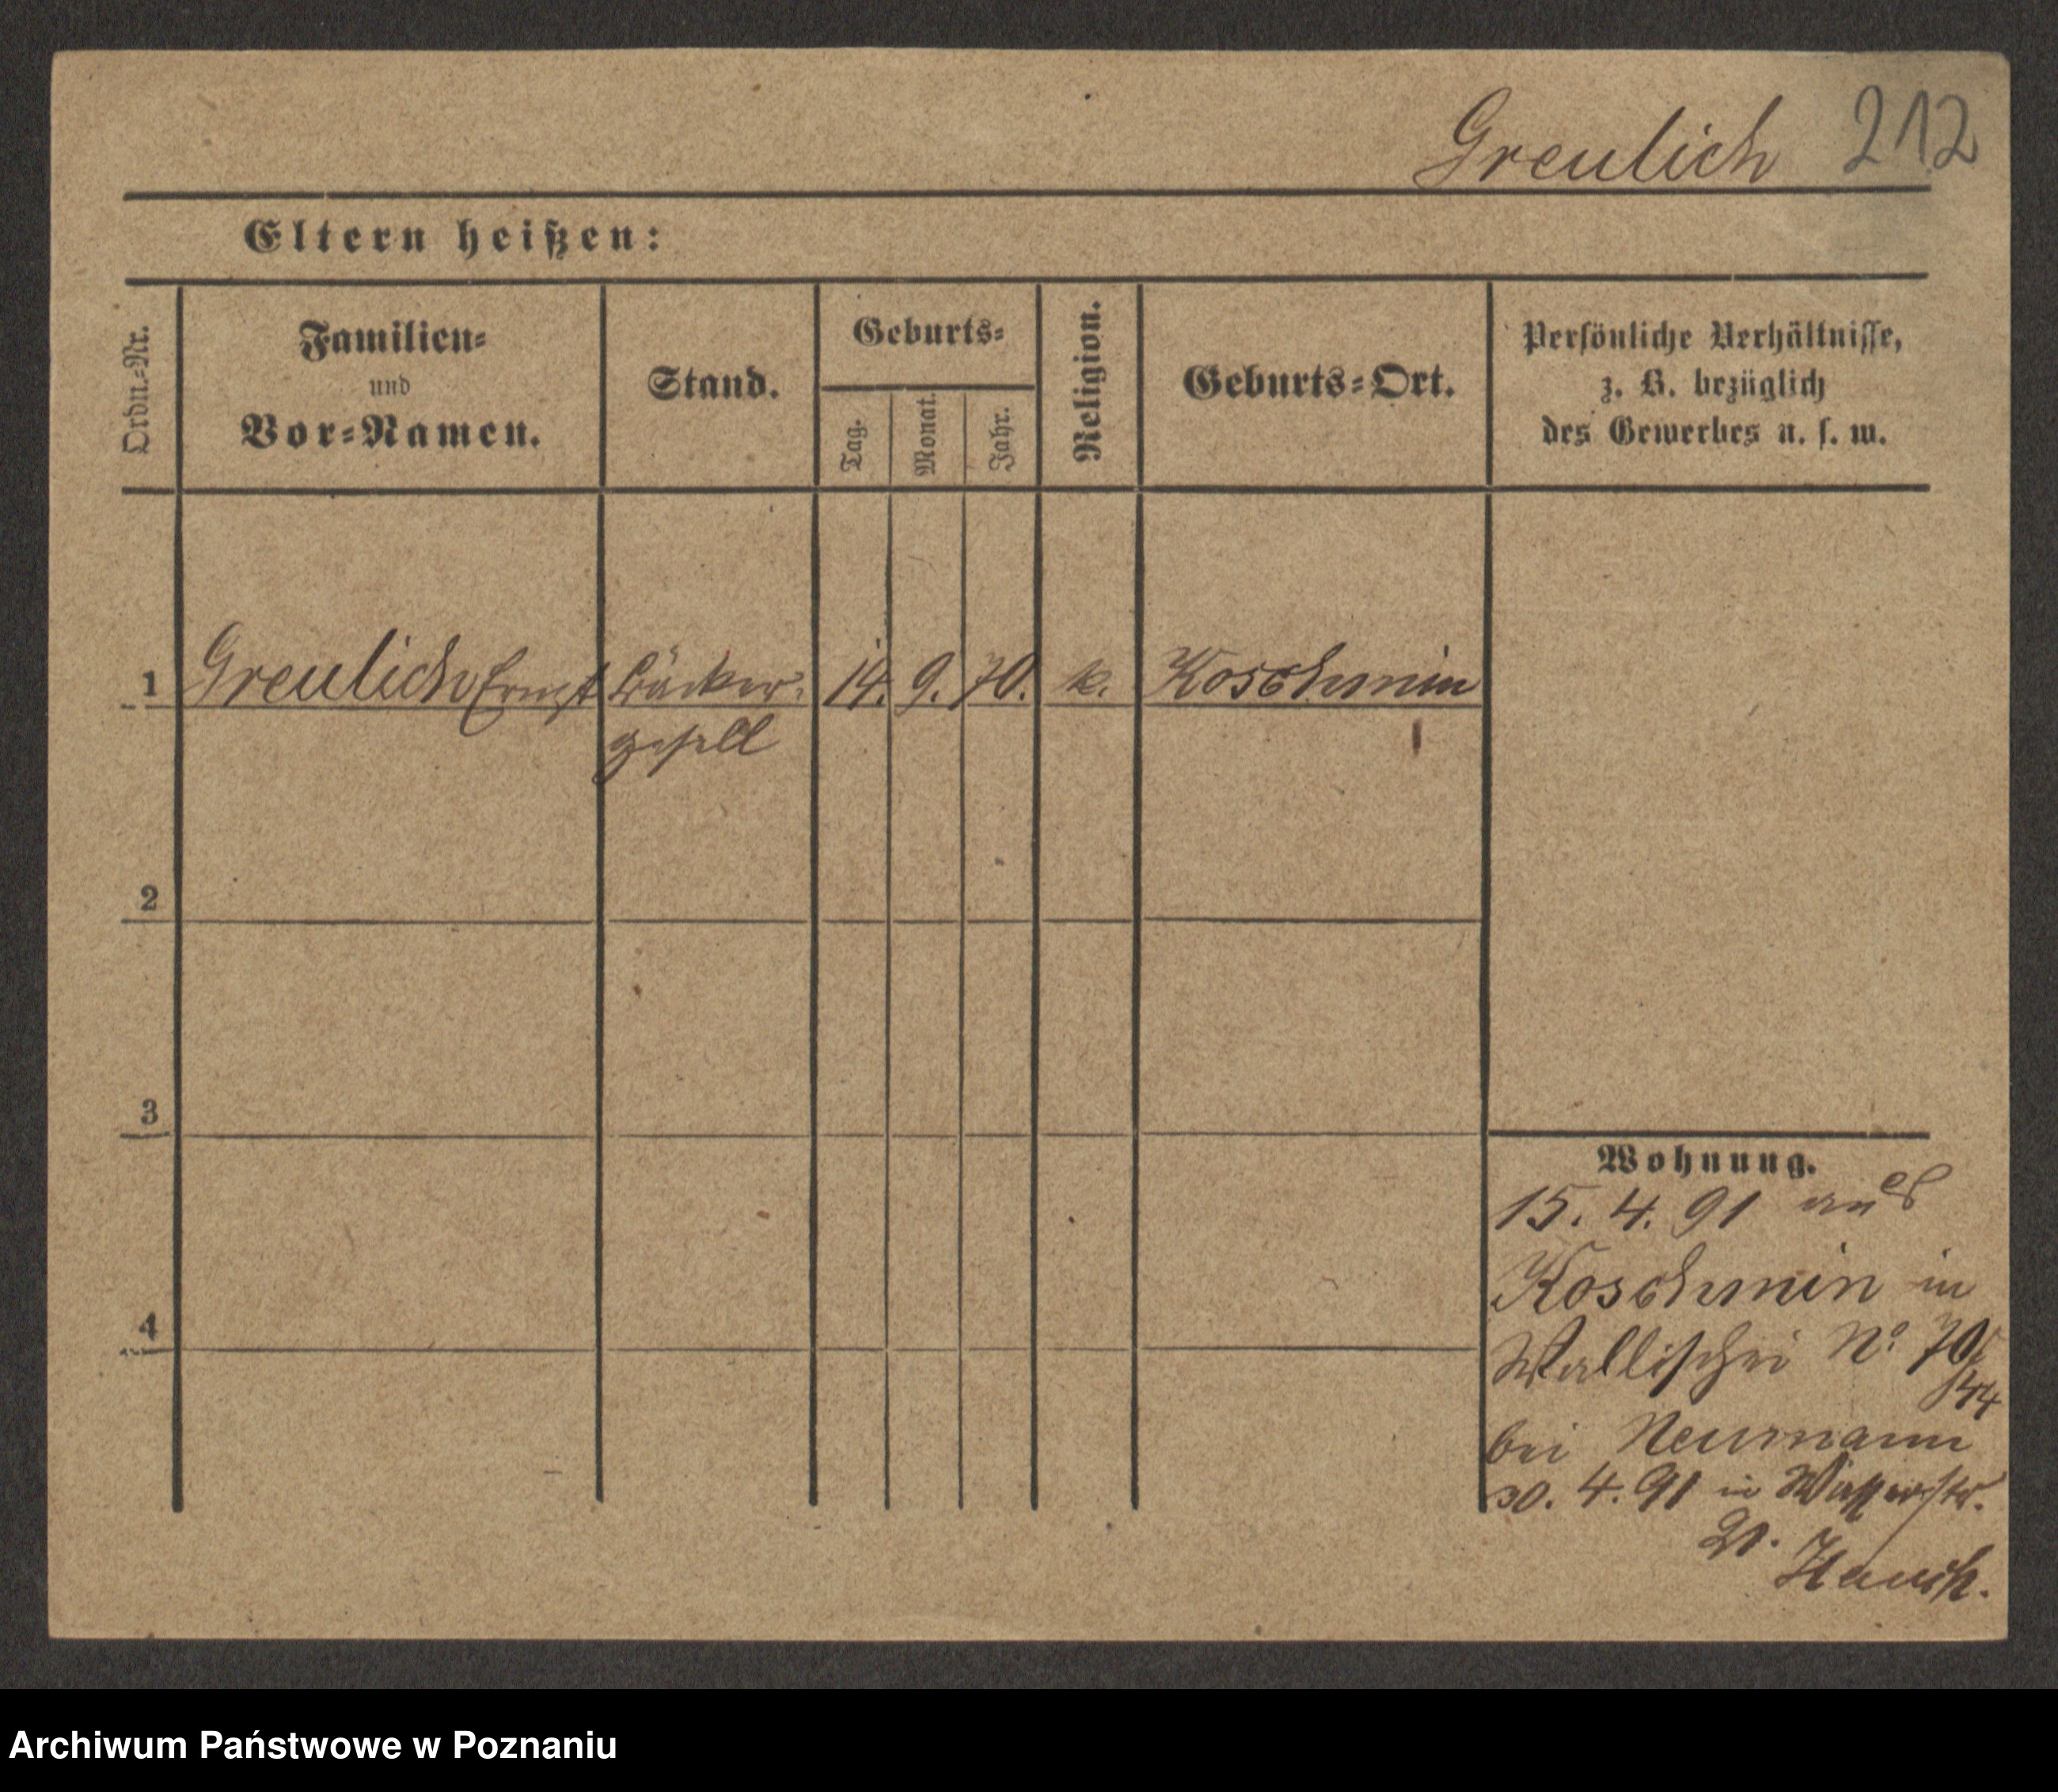 Greulich 212
Eltern heißen:
Ordn.-Nr.
Familien-
und
Vor-Namen.
Stand.
Geburts-
Tag.
Monat.
Jahr.
Religion.
Geburts-Ort.
Persönliche Verhältnisse,
z. B. bezüglich
des Gewerbes u. s. w.
1 Greulich Ernst Bäcker- 14. 9. 70. k. Koschmin
gesell
2
3
4
Wohnung.
15. 4. 91 aus
Koschmin in
Wallischei No. 70
bei Neumann
30. 4. 91 in Wasserstr.
21.
Archiwum Państwowe w Poznaniu